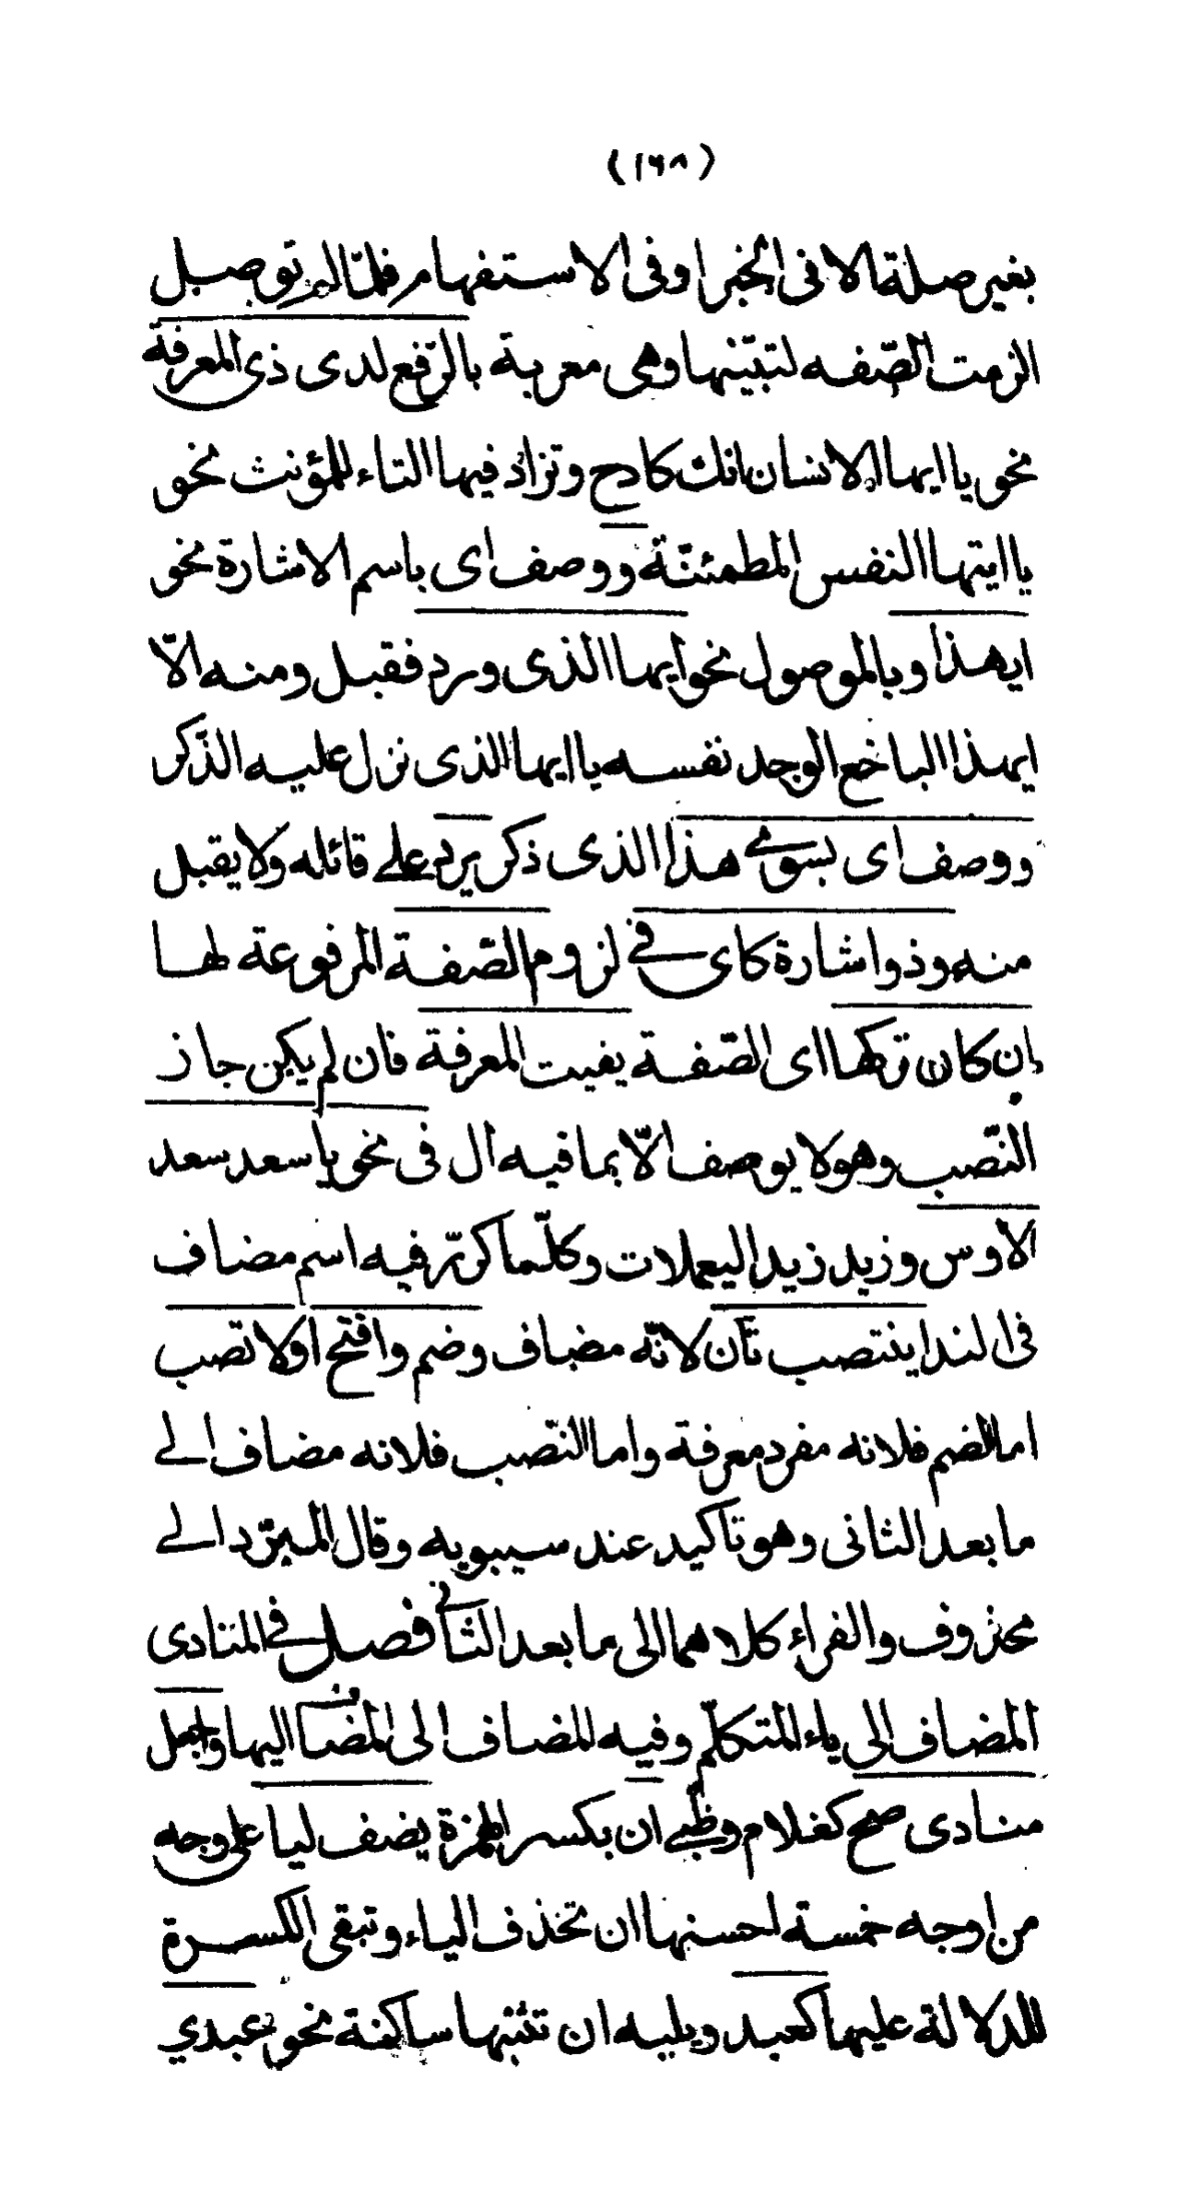 (١٦٨)
بغير صلة الا فى الخبر او فى الاستفهام فلمّا لم توصل
الزمت الصّفه لتبيّنها وهى معربة بالرّفع لدى ذى المعرفة
نحو يا ايها الانسان انك كادح وتزاد فيها التاء للمؤنث نحو
يا ايتها النفس المطمئنّة ووصف اى باسم الاشارة نحو
ايهذا وبالموصول نحو ايها الذى ورد فقبل ومنه الّا
ايهذا الباخع الوجد نفسه يا ايها الذى نزل عليه الذّكر
ووصف اى بسوى هذا الذى ذكر يرد على قائله ولا يقبل
منه وذو اشارة كاى فى لزوم الصّفة المرفوعة لها
ان كان تركها اى الصّفة يفيت المعرفة فان لم يكن جاز
النّصب وهو لا يوصف الّا بما فيه ال فى نحو يا سعد سعد
الاوس وزيد زيد اليعملات وكلّما كرّر فيه اسم مضاف
فى الندا ينتصب ثان لانّه مضاف وضم وافتح اولا تصب
اما الضم فلانه مفرد معرفة واما النّصب فلانه مضاف الى
ما بعد الثانى وهو تاكيد عند سيبويه وقال المبرّد الى
محذوف والفراء كلاهما الى ما بعد الثانى فصل فى المنادى
المضاف الى ياء المتكلّم وفيه المضاف الى المضاف اليها واجعل
منادى صح كغلام وظبى ان بكسر الهمزة يضف ليا على وجه
من اوجه خمسة احسنها ان تحذف الياء وتبقى الكسرة
للدلالة عليها كعبد ويليه ان تثبتها ساكنة نحو عبدي